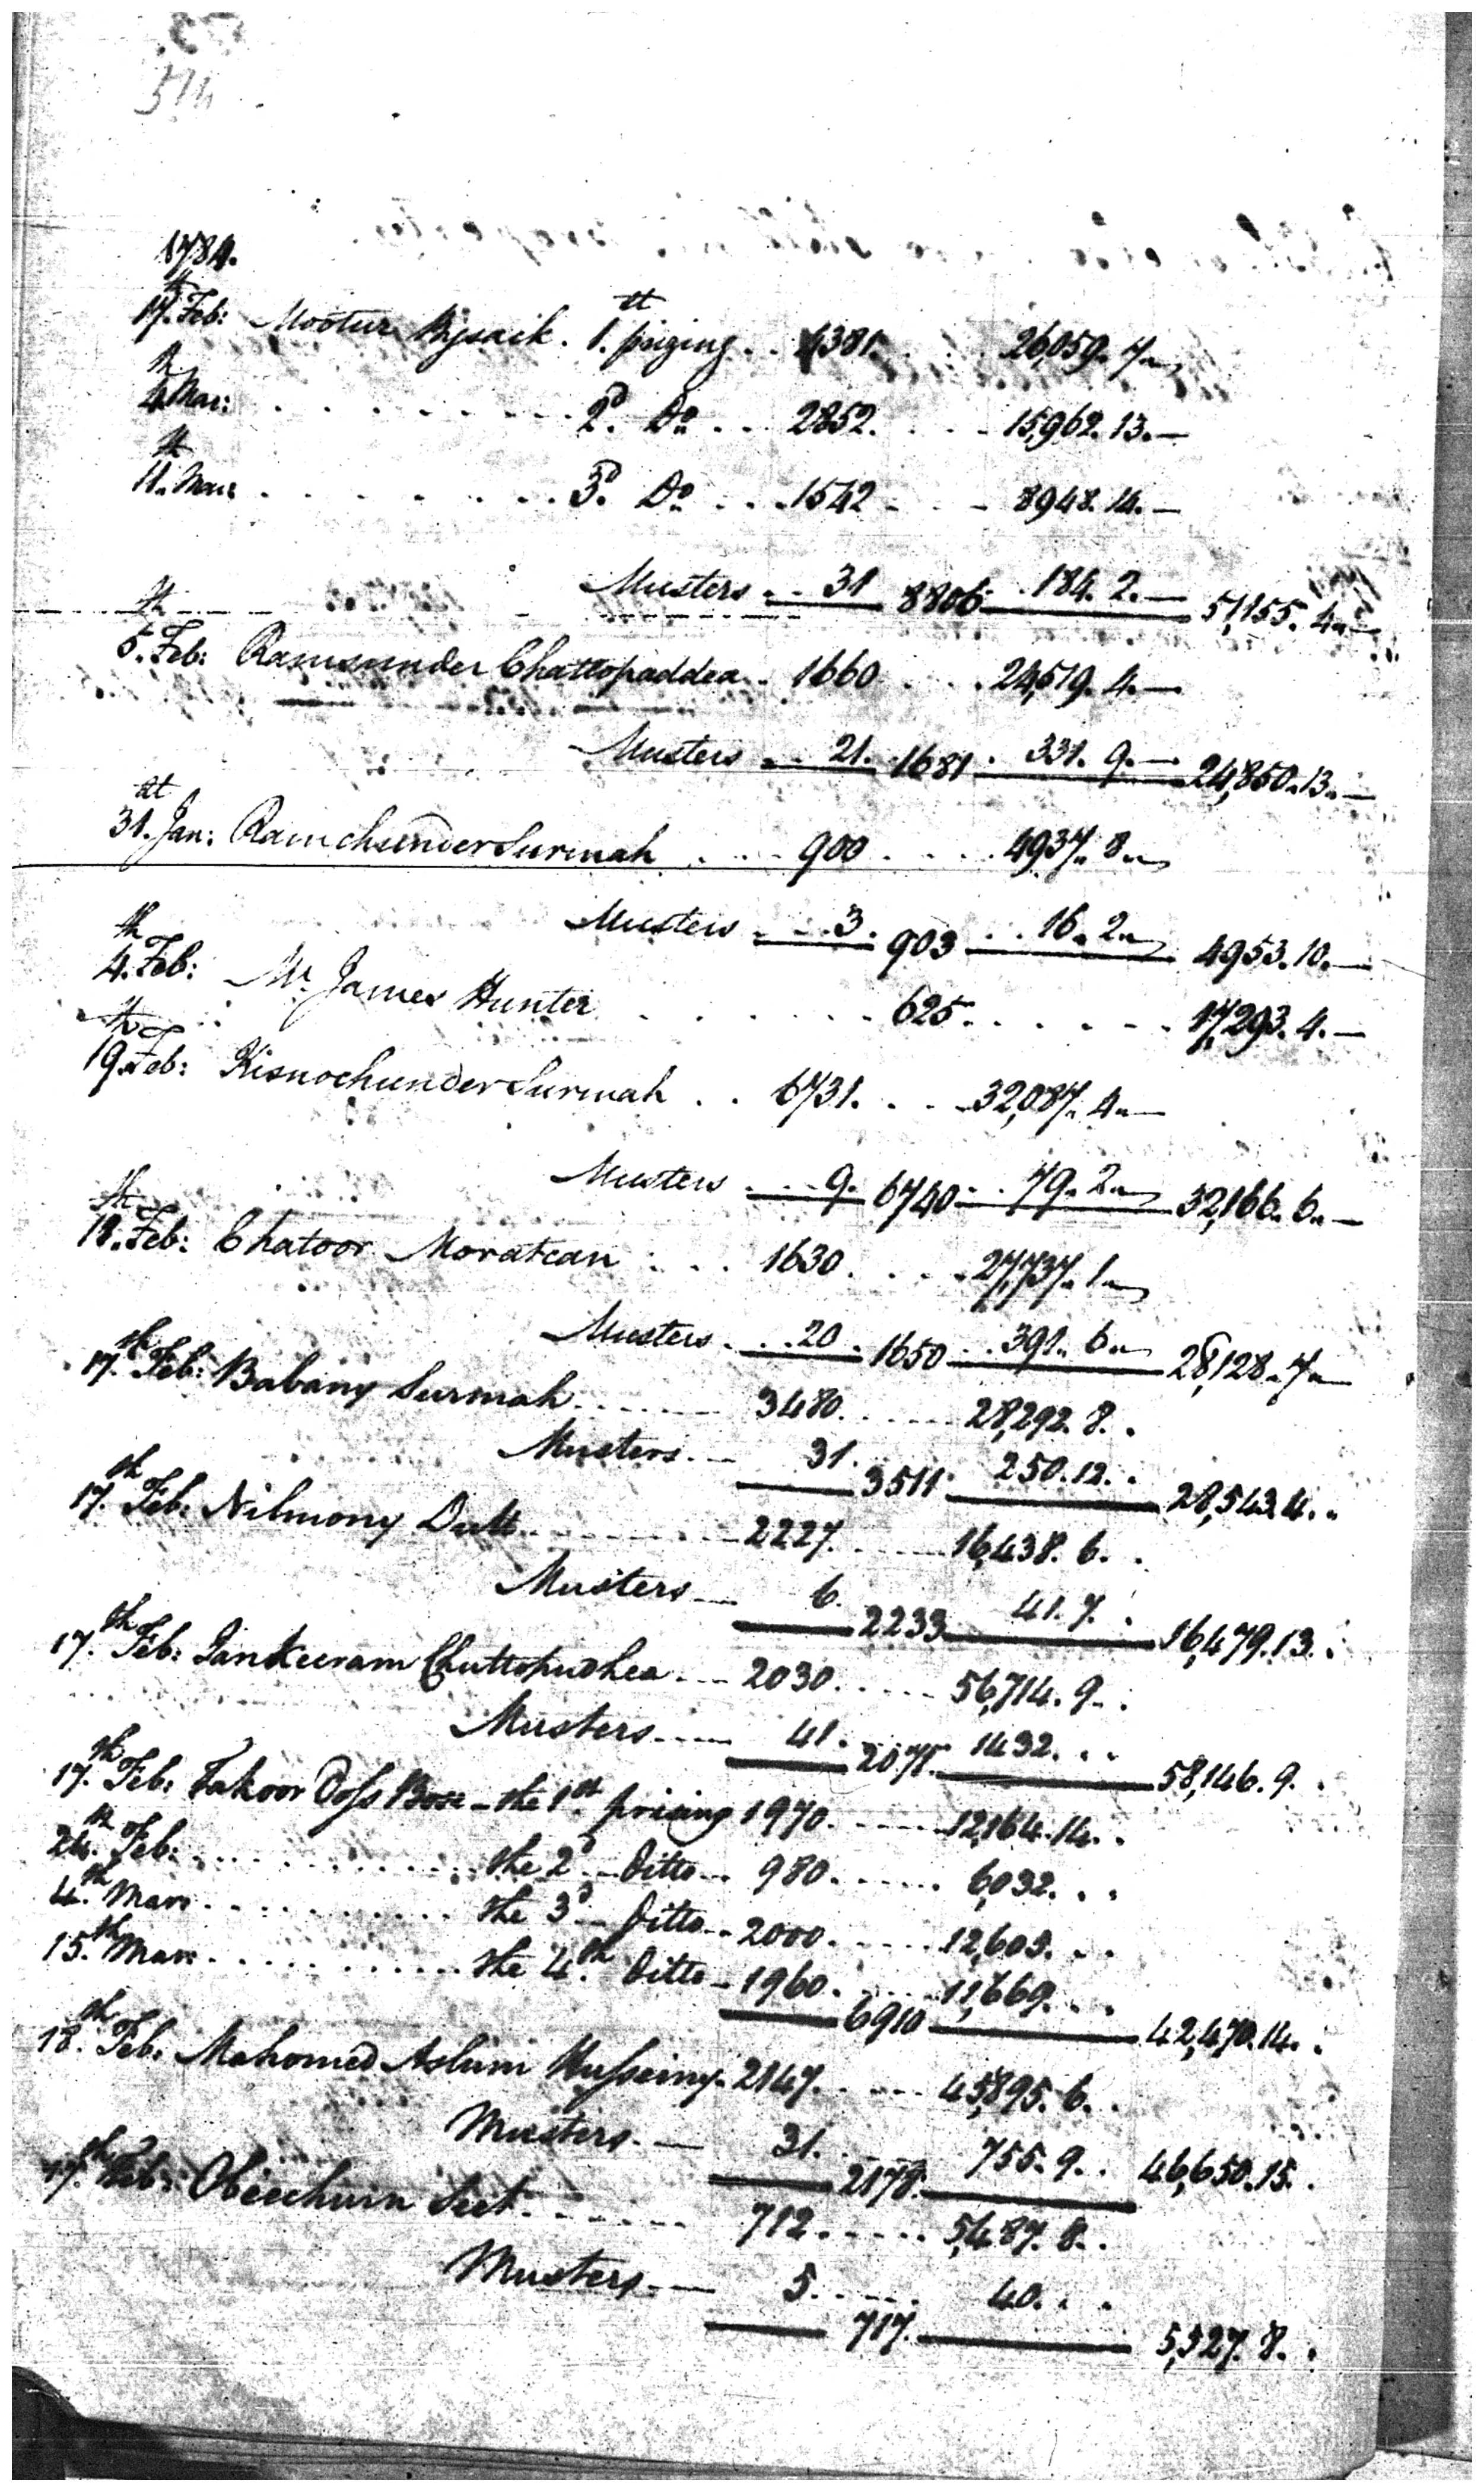 514
1784.
17.th Feb: Mootur Bysaik. 1.st prizing . . 4381. . . . 26,059. 7. —
4.th Mar: . . . . . . . . 2.d Do. . . 2852. . . . 15,962. 13. —
11.th Mar: . . . . . . . . 3.d Do. . . 1542 . . . 8948. 14. —
Musters . . 31 8806 . 184. 2. — 51,155. 4. —
5.th Feb: Ramsunder Chattopaddea . . 1660 . . . 24,519. 4. —
Musters . . 21. 1681 . 331. 9. — 24,850. 13. —
31.st Jan: Ramchunder Surmah . . . 900 . . . . 4937. 8. —
Musters . . 3. 903 . . 16. 2. — 4953. 10. —
4.th Feb: Mr. James Hunter . . . . . . 625 . . . . . . 17,293. 4. —
19.th Feb: Kisnochunder Surmah . . 6731. . . . 32,087. 4. —
Musters . . 9. 6740 . . 79. 2. — 32,166. 6. —
18.th Feb: Chatoor Moratcan . . . 1630 . . . . 27,737. 1. —
Musters . . 20 . 1650 . . 391. 6. — 28,128. 7. —
17.th Feb: Babany Surmah . . . . . 3480 . . . . . 28,292. 8. .
Musters . — 31. 3511. 250. 12. . 28,543. 4. .
17.th Feb: Nilmony Dutt . . . . . . 2227. . . . . 16,438. 6. .
Musters — 6. 2233 41. 7. . 16,479. 13. .
17.th Feb: Jankeeram Chuttopudhea . . . 2030. . . . . 56,714. 9. .
Musters . . . 41. 2071. 1432. . . 58,146. 9. .
17.th Feb: Takoor Doss Bose - the 1st prizing 1970. . . . . 12,164. 14. .
24.th Feb: . . . . . . . . . the 2d . . Ditto . . 980. . . . . . 6,032. . .
4.th Mar: . . . . . . . . . the 3d . . Ditto . . 2000. . . . . 12,605. . .
15.th Mar: . . . . . . . . . the 4.th Ditto - 1960. 6910 11,669. . . 42,470. 14. .
18.th Feb: Mahomed Aslum Husseiny - 2147. . . . . 45,895. 6. .
Musters . — 31. 2178. 755. 9. . 46,650. 15. .
17.th Feb: Obeechurn Seet . . . . . . 712. . . . . 5,487. 8. .
Musters . — 5. . . . . 717. 40. . . 5,527. 8. .